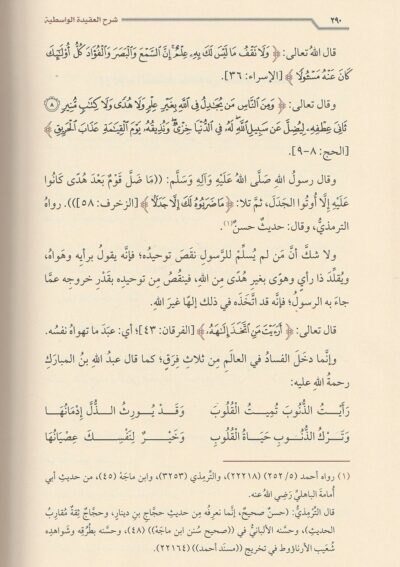 ٢٩٠
شرح العقيدة الواسطية
قال اللهُ تعالى: ﴿ وَلَا تَقْفُ مَا لَيْسَ لَكَ بِهِۦ عِلْمٌ ۚ إِنَّ ٱلسَّمْعَ وَٱلْبَصَرَ وَٱلْفُؤَادَ كُلُّ أُو۟لَٰٓئِكَ
كَانَ عَنْهُ مَسْـُٔولًا ﴾ [الإسراء: ٣٦].
وقال تعالى: ﴿ وَمِنَ ٱلنَّاسِ مَن يُجَٰدِلُ فِى ٱللَّهِ بِغَيْرِ عِلْمٍ وَلَا هُدًى وَلَا كِتَٰبٍ مُّنِيرٍ ۝٨
ثَانِىَ عِطْفِهِۦ لِيُضِلَّ عَن سَبِيلِ ٱللَّهِ ۖ لَهُۥ فِى ٱلدُّنْيَا خِزْىٌ ۖ وَنُذِيقُهُۥ يَوْمَ ٱلْقِيَٰمَةِ عَذَابَ ٱلْحَرِيقِ ﴾
[الحج: ٨-٩].
وقال رسولُ اللهِ صَلَّى اللهُ عَلَيْهِ وَآلِهِ وَسَلَّم: ((مَا ضَلَّ قَوْمٌ بَعْدَ هُدًى كَانُوا
عَلَيْهِ إِلَّا أُوتُوا الجَدَلَ، ثمَّ تلا: ﴿ مَا ضَرَبُوهُ لَكَ إِلَّا جَدَلًا ﴾ [الزخرف: ٥٨])). رواهُ
الترمذيُّ، وقال: حديثٌ حسنٌ(١).
ولا شكَّ أنَّ مَن لم يُسلِّمْ للرَّسولِ نقَصَ توحيدُه؛ فإنَّه يقولُ برأيِه وهواهُ،
ويُقلِّدُ ذا رأيٍ وهوًى بغيرِ هُدًى مِن اللهِ، فينقُصُ مِن توحيدِه بقَدْرِ خروجِه عمَّا
جاءَ به الرسولُ؛ فإنَّه قد اتَّخَذَه في ذلك إلهًا غيرَ اللهِ.
قال تعالى: ﴿ أَرَءَيْتَ مَنِ ٱتَّخَذَ إِلَٰهَهُۥ ﴾ [الفرقان: ٤٣]؛ أي: عبَدَ ما تهواهُ نفسُه.
وإنَّما دخَلَ الفسادُ في العالَمِ مِن ثلاثِ فِرَقٍ؛ كما قال عبدُ اللهِ بنُ المباركِ
رحمةُ اللهِ عليه:
رَأَيْتُ الذُّنُوبَ تُمِيتُ القُلُوبَ وَقَدْ يُورِثُ الذُّلَّ إِدْمَانُهَا
وَتَرْكُ الذُّنُوبِ حَيَاةُ القُلُوبِ وَخَيْرٌ لِنَفْسِكَ عِصْيَانُهَا
(١) رواه أحمد (٥/ ٢٥٢) (٢٢٢١٨)، والتِّرمذي (٣٢٥٣)، وابن ماجَهْ (٤٥)، من حديثِ أبي
أُمامةَ الباهليِّ رَضِيَ اللهُ عنه.
قال التِّرمذيُّ: (حسنٌ صحيحٌ، إنَّما نعرِفُه مِن حديثِ حجَّاجِ بنِ دينارٍ، وحجَّاجٌ ثِقةٌ مُقارِبُ
الحديثِ)، وحسَّنه الألبانيُّ في ((صحيح سُنن ابن ماجَهْ)) (٤٨)، وحسَّنه بطُرُقِه وشَواهدِه
شُعَيب الأرناؤوط في تخريج ((مسنَد أحمد)) (٢٢١٦٤).